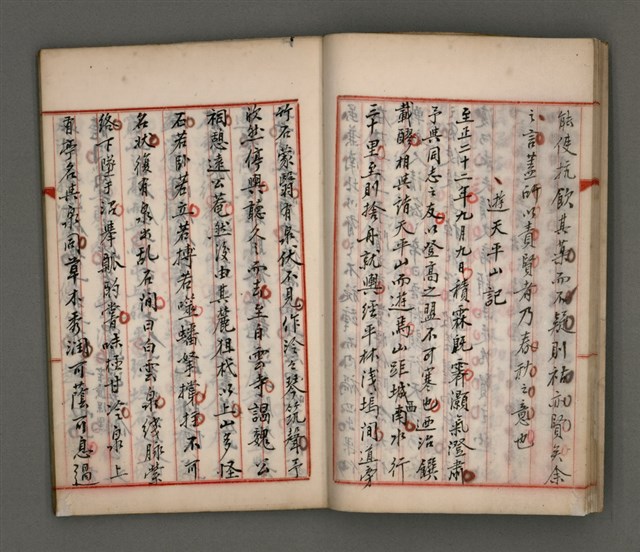 能使抗飲其藥而不疑則祜亦賢矣余
之言蓋所以責賢者乃春秋之意也
遊天平山記
至正二十二年九月九日積霖既霽灝氣澄肅
予與同志之友以登高之盟不可寒也迺治饌
載醪相與詣天平山而遊焉山距城西南水行
三十里至則捨舟就輿經平林淺塢間道旁
竹石蒙翳有泉伏不見作泠泠琴筑聲予
欣然停輿聽久之而去至白雲寺謁魏公
祠憩遠公菴然後由其麓狙杙以上山多怪
石若臥若立若搏若噬蟠拏撐拄不可
名狀復有泉出亂石間曰白雲泉綫脉縈
絡下墜于沼舉瓢酌嘗味極甘冷泉上
有亭名與泉同草木秀潤可蔭可息過